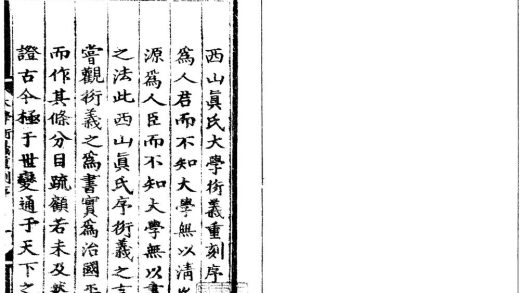 西山眞氏大學衍義重刻序
爲人君而不知大學無以清出
源爲人臣而不知大學無以盡
之法此西山眞氏序衍義之言
嘗觀衍義之爲書實爲治國平
而作其條分目疏顧若未及然
證古今極于世變通于天下之